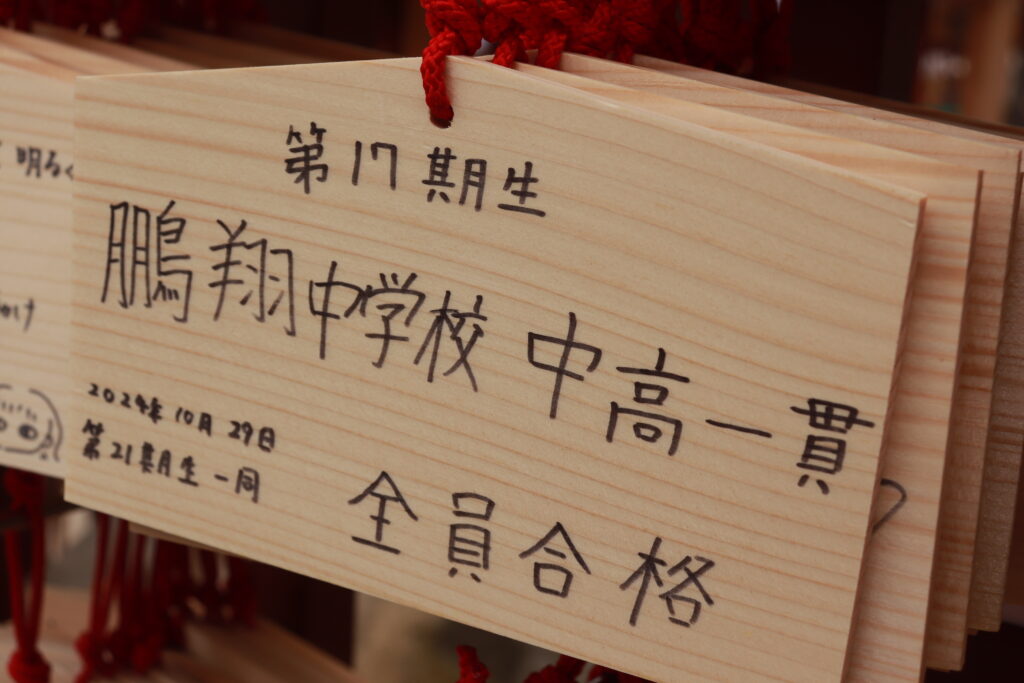 第17期生
鵬翔中学校 中高一貫
全員合格
2024年10月29日
第21期生一同
明るく